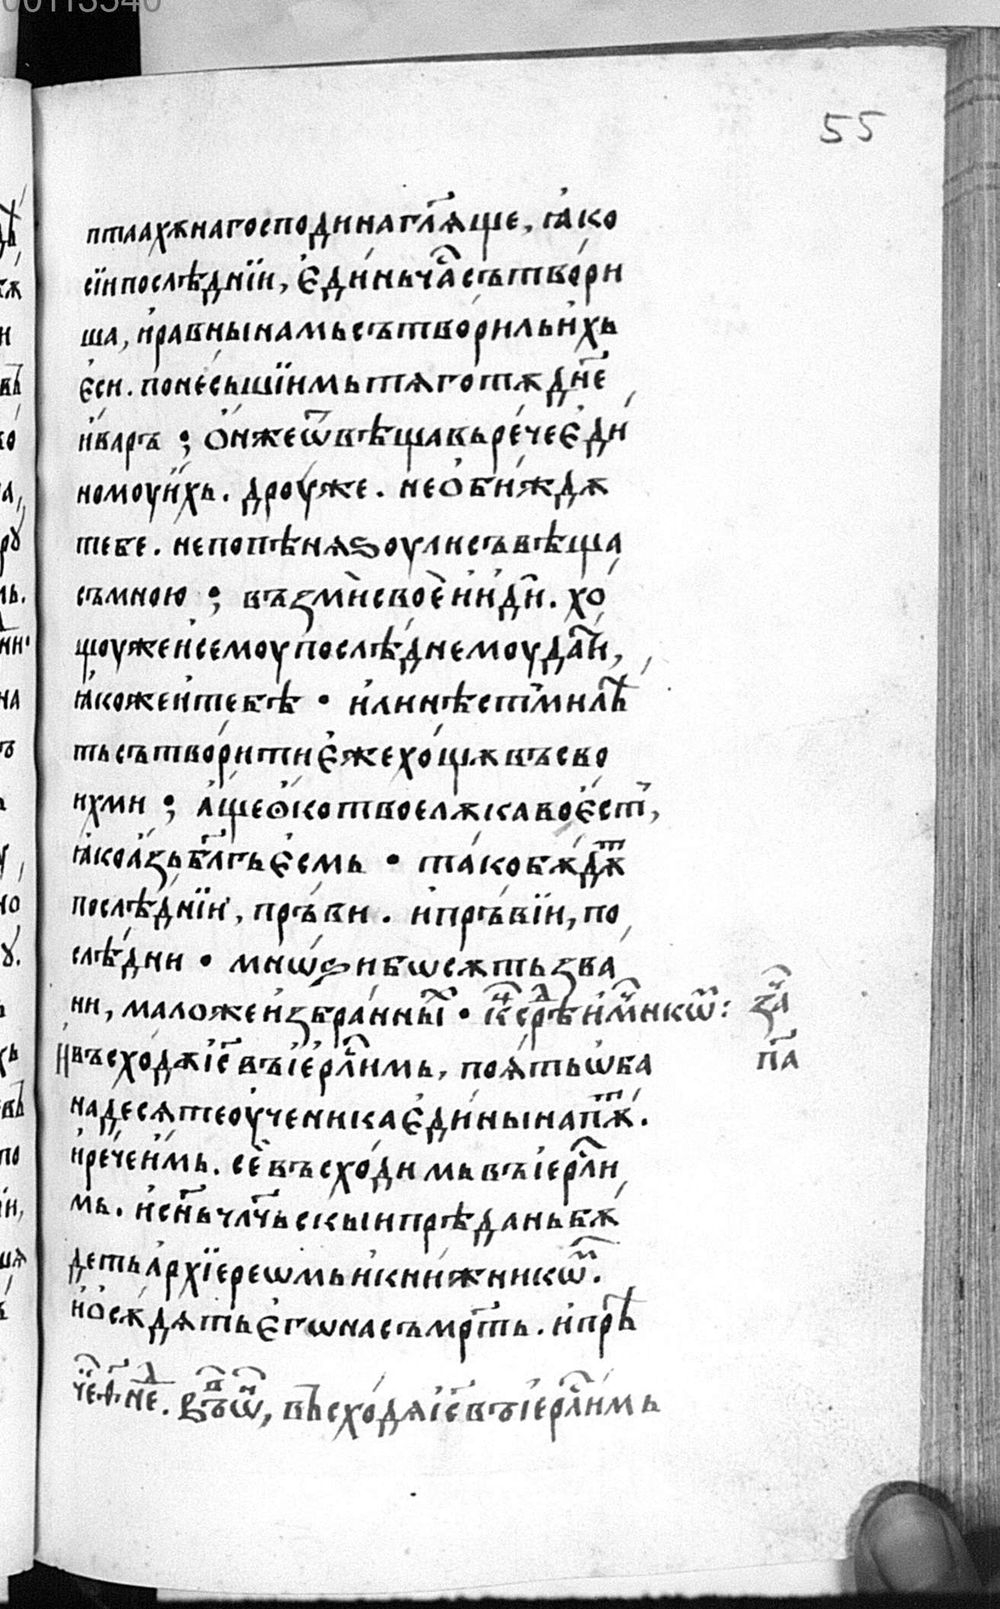 55
птаахѫ на господина гл҃ѧще, ꙗко
сїи послѣднїи, єдинь ча҃с сътвори
ша, и равны намь сътвориль ихь
єси. понесьшїимь тѧготѫ дн҃е
и варъ ; Ѻнже ѿвѣщавь рече єди
номоу ихь. дроуже. не ѻбиждѫ
тебе. не по пѣнѧѕоу ли съвѣща
съ мною ; възми своє и иди. хо
щоу же и семоу послѣднемоу да҃ти,
ꙗкоже и тебѣ • или нѣст ми лѣ
ть сътворити єже хощѫ въ сво
ихми ; аще ѻко твое лѫкаво єст,
ꙗко азь бл҃гь єсмь • тако бѫдѫт
послѣднїи, пръви. и пръвїи, по
слѣдни • мнѡѕи бѡ сѫть зва
ни, мало же избранныих •
въсходѧ іс҃ въ іер҃лимь, поѧть ѡба
на десѧте оученика єдины на пѫт.
и рече имь. се въсходимь въ іер҃ли
мь. и сн҃ь чл҃чьскыи прѣдань бѫ
деть архїереѡмь и книжникѡм.
и ѻсѫдѧть єго на съмр҃ть. и прѣ
въсходѧ іс҃ въ іер҃лимь